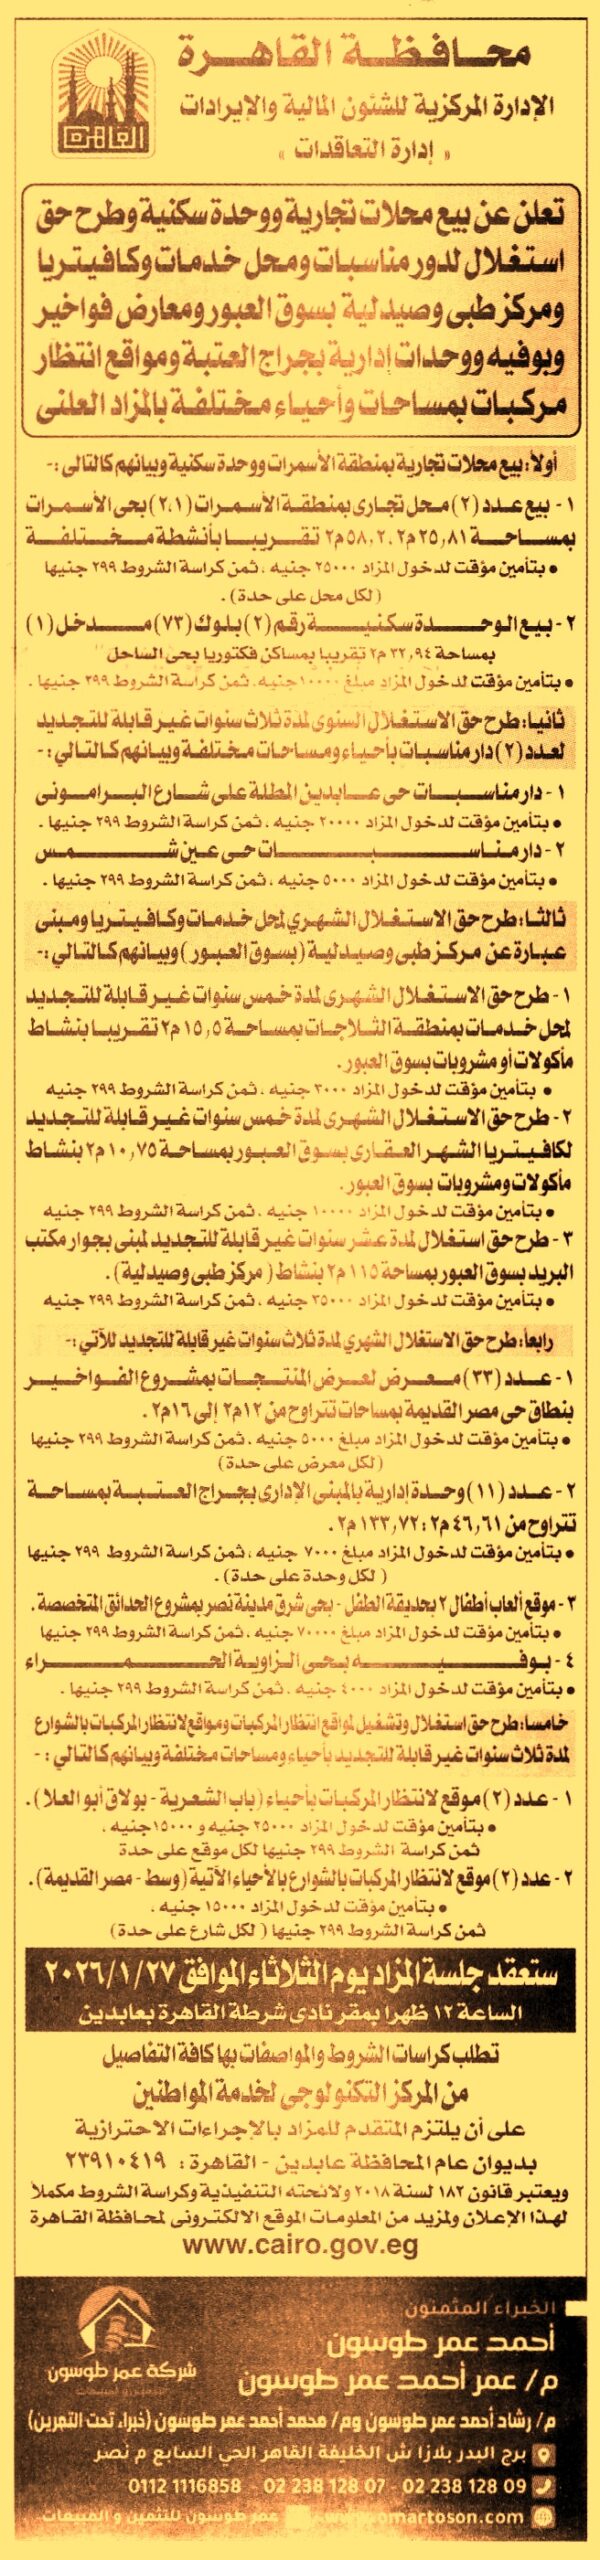 محافظة القاهرة
الإدارة المركزية للشئون المالية والإيرادات
« إدارة التعاقدات »
القاهرة
تعلن عن بيع محلات تجارية ووحدة سكنية وطرح حق
استغلال لدور مناسبات ومحل خدمات وكافيتريا
ومركز طبى وصيدلية بسوق العبور ومعارض فواخير
وبوفيه ووحدات إدارية بجراج العتبة ومواقع انتظار
مركبات بمساحات وأحياء مختلفة بالمزاد العلنى
أولاً: بيع محلات تجارية بمنطقة الأسمرات ووحدة سكنية وبيانهم كالتالى :-
١- بيع عدد (٢) محل تجارى بمنطقة الأسمرات (٢،١) بحى الأسمرات
بمساحة ٢٥,٨١ م٢، ٥٨,٢ م٢ تقريبا بأنشطة مختلفة
• بتأمين مؤقت لدخول المزاد ٢٥٠٠٠ جنيه ، ثمن كراسة الشروط ٢٩٩ جنيها
(لكل محل على حدة) .
٢- بيع الوحدة سكنية رقم (٢) بلوك (٧٣) مدخل (١)
بمساحة ٣٢,٩٤ م٢ تقريبا بمساكن فكتوريا بحى الساحل
• بتأمين مؤقت لدخول المزاد مبلغ ١٠٠٠٠ جنيه، ثمن كراسة الشروط ٢٩٩ جنيها .
ثانيا: طرح حق الاستغلال السنوى لمدة ثلاث سنوات غير قابلة للتجديد
لعدد (٢) دار مناسبات بأحياء ومساحات مختلفة وبيانهم كالتالي :-
١- دار مناسبات حى عابدين المطلة على شارع البرامونى
• بتأمين مؤقت لدخول المزاد ٢٠٠٠٠ جنيه ، ثمن كراسة الشروط ٢٩٩ جنيها .
٢- دار مناسبات حى عين شمس
• بتأمين مؤقت لدخول المزاد ٥٠٠٠ جنيه ، ثمن كراسة الشروط ٢٩٩ جنيها .
ثالثا: طرح حق الاستغلال الشهري لمحل خدمات وكافيتريا ومبنى
عبارة عن مركز طبى وصيدلية (بسوق العبور) وبيانهم كالتالي :-
١- طرح حق الاستغلال الشهرى لمدة خمس سنوات غير قابلة للتجديد
لمحل خدمات بمنطقة الثلاجات بمساحة ١٥,٥ م٢ تقريبا بنشاط
مأكولات أو مشروبات بسوق العبور .
• بتأمين مؤقت لدخول المزاد ٣٠٠٠ جنيه ، ثمن كراسة الشروط ٢٩٩ جنيه
٢- طرح حق الاستغلال الشهرى لمدة خمس سنوات غير قابلة للتجديد
لكافيتريا الشهر العقارى بسوق العبور بمساحة ١٠,٧٥ م٢ بنشاط
مأكولات ومشروبات بسوق العبور .
• بتأمين مؤقت لدخول المزاد ١٠٠٠٠ جنيه ، ثمن كراسة الشروط ٢٩٩ جنيه
٣- طرح حق استغلال لمدة عشر سنوات غير قابلة للتجديد لمبنى بجوار مكتب
البريد بسوق العبور بمساحة ١١٥ م٢ بنشاط ( مركز طبى وصيدلية) .
• بتأمين مؤقت لدخول المزاد ٣٥٠٠٠ جنيه ، ثمن كراسة الشروط ٢٩٩ جنيه
رابعاً: طرح حق الاستغلال الشهري لمدة ثلاث سنوات غير قابلة للتجديد للآتي :-
١- عدد (٣٣) معرض لعرض المنتجات بمشروع الفواخير
بنطاق حى مصر القديمة بمساحات تتراوح من ١٢م٢ إلى ١٦م٢ .
• بتأمين مؤقت لدخول المزاد مبلغ ٥٠٠٠ جنيه ، ثمن كراسة الشروط ٢٩٩ جنيها
(لكل معرض على حدة)
٢- عدد (١١) وحدة إدارية بالمبنى الإدارى بجراج العتبة بمساحة
تتراوح من ٤٦,٦١ م٢ : ١٣٣,٧٢ م٢ .
• بتأمين مؤقت لدخول المزاد مبلغ ٧٠٠٠ جنيه ، ثمن كراسة الشروط ٢٩٩ جنيها
( لكل وحدة على حدة) .
٣- موقع ألعاب أطفال ٢ بحديقة الطفل - بحى شرق مدينة نصر بمشروع الحدائق المتخصصة .
• بتأمين مؤقت لدخول المزاد مبلغ ٧٠٠٠٠ جنيه ، ثمن كراسة الشروط ٢٩٩ جنيها
٤- بوفيه بحى الزاوية الحمراء
• بتأمين مؤقت لدخول المزاد ٤٠٠٠ جنيه . ثمن كراسة الشروط ٢٩٩ جنيها .
خامسا: طرح حق استغلال وتشغيل لمواقع انتظار المركبات ومواقع لانتظار المركبات بالشوارع
لمدة ثلاث سنوات غير قابلة للتجديد بأحياء ومساحات مختلفة وبيانهم كالتالي :-
١- عدد (٢) موقع لانتظار المركبات بأحياء (باب الشعرية - بولاق أبو العلا) .
• بتأمين مؤقت لدخول المزاد ٢٥٠٠٠ جنيه و ١٥٠٠٠ جنيه ،
ثمن كراسة الشروط ٢٩٩ جنيها لكل موقع على حدة
٢- عدد (٢) موقع لانتظار المركبات بالشوارع بالأحياء الآتية (وسط - مصر القديمة) .
• بتأمين مؤقت لدخول المزاد ١٥٠٠٠ جنيه ،
ثمن كراسة الشروط ٢٩٩ جنيها ( لكل شارع على حدة)
ستعقد جلسة المزاد يوم الثلاثاء الموافق ٢٠٢٦/١/٢٧
الساعة ١٢ ظهرا بمقر نادى شرطة القاهرة بعابدين
تطلب كراسات الشروط والمواصفات بها كافة التفاصيل
من المركز التكنولوجى لخدمة المواطنين
على أن يلتزم المتقدم للمزاد بالإجراءات الاحترازية
بديوان عام المحافظة عابدين - القاهرة : ٢٣٩١٠٤١٩
ويعتبر قانون ١٨٢ لسنة ٢٠١٨ ولائحته التنفيذية وكراسة الشروط مكملا
لهذا الإعلان ولمزيد من المعلومات الموقع الالكترونى لمحافظة القاهرة
www.cairo.gov.eg
الخبراء المثمنون
أحمد عمر طوسون
م/ عمر أحمد عمر طوسون
شركة عمر طوسون
م/ رشاد أحمد عمر طوسون وم/ محمد أحمد عمر طوسون (خبراء تحت التمرين)
برج البدر بلازا ش الخليفة القاهر الحي السابع م نصر
0112 1116858 - 02 238 128 07 - 02 238 128 09
www.omartoson.com عمر طوسون للتثمين و المبيعات